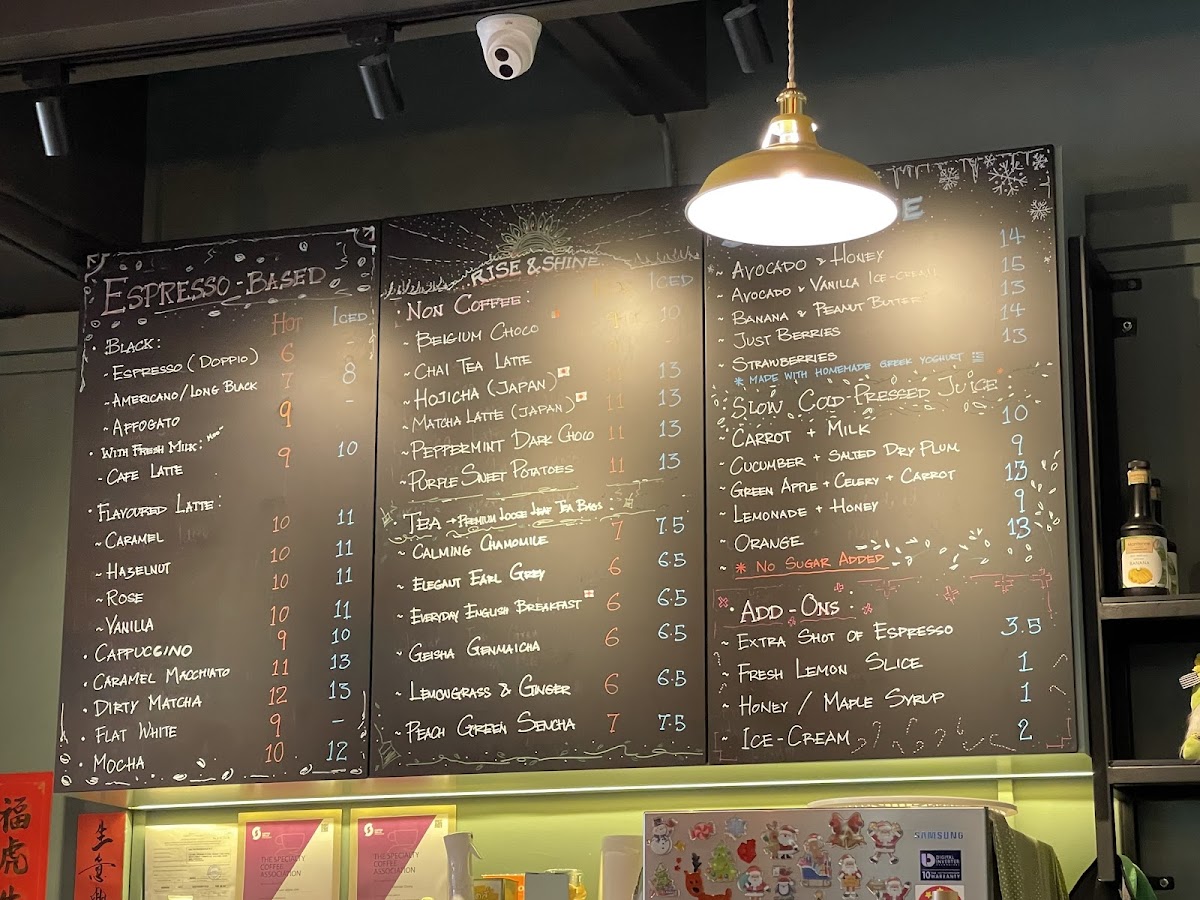 ESPRESSO-BASED
HOT ICED
BLACK:
~ESPRESSO (DOPPIO) 6 -
~AMERICANO/LONG BLACK 7 8
~AFFOGATO 9 -
· WITH FRESH MILK:
~CAFE LATTE 9 10
· FLAVOURED LATTE:
~CARAMEL 10 11
~HAZELNUT 10 11
~ROSE 10 11
~VANILLA 10 11
· CAPPUCCINO 9 10
· CARAMEL MACCHIATO 11 13
· DIRTY MATCHA 12 13
· FLAT WHITE 9 -
· MOCHA 10 12
RISE & SHINE
· NON COFFEE: ICED
~BELGIUM CHOCO 10
~CHAI TEA LATTE -
~HOJICHA (JAPAN) 11 13
~MATCHA LATTE (JAPAN) 11 13
~PEPPERMINT DARK CHOCO 11 13
~PURPLE SWEET POTATOES 11 13
· TEA ~PREMIUM LOOSE LEAF TEA BAGS:
~CALMING CHAMOMILE 7 7.5
~ELEGANT EARL GREY 6 6.5
~EVERYDAY ENGLISH BREAKFAST 6 6.5
~GEISHA GENMAICHA 6 6.5
~LEMONGRASS & GINGER 6 6.5
~PEACH GREEN SENCHA 7 7.5
~AVOCADO & HONEY 14
~AVOCADO & VANILLA ICE-CREAM 15
~BANANA & PEANUT BUTTER 13
~JUST BERRIES 14
~STRAWBERRIES 13
* MADE WITH HOMEMADE GREEK YOGHURT
SLOW COLD-PRESSED JUICE:
~CARROT + MILK 10
~CUCUMBER + SALTED DRY PLUM 9
~GREEN APPLE + CELERY + CARROT 13
~LEMONADE + HONEY 9
~ORANGE 13
~* NO SUGAR ADDED
· ADD-ONS:
~EXTRA SHOT OF ESPRESSO 3.5
~FRESH LEMON SLICE 1
~HONEY / MAPLE SYRUP 1
~ICE-CREAM 2
福虎
生意
THE SPECIALTY
COFFEE
ASSOCIATION
THE SPECIALTY
COFFEE
ASSOCIATION
SAMSUNG
DIGITAL
INVERTER
10 WARRANTY
BANANA